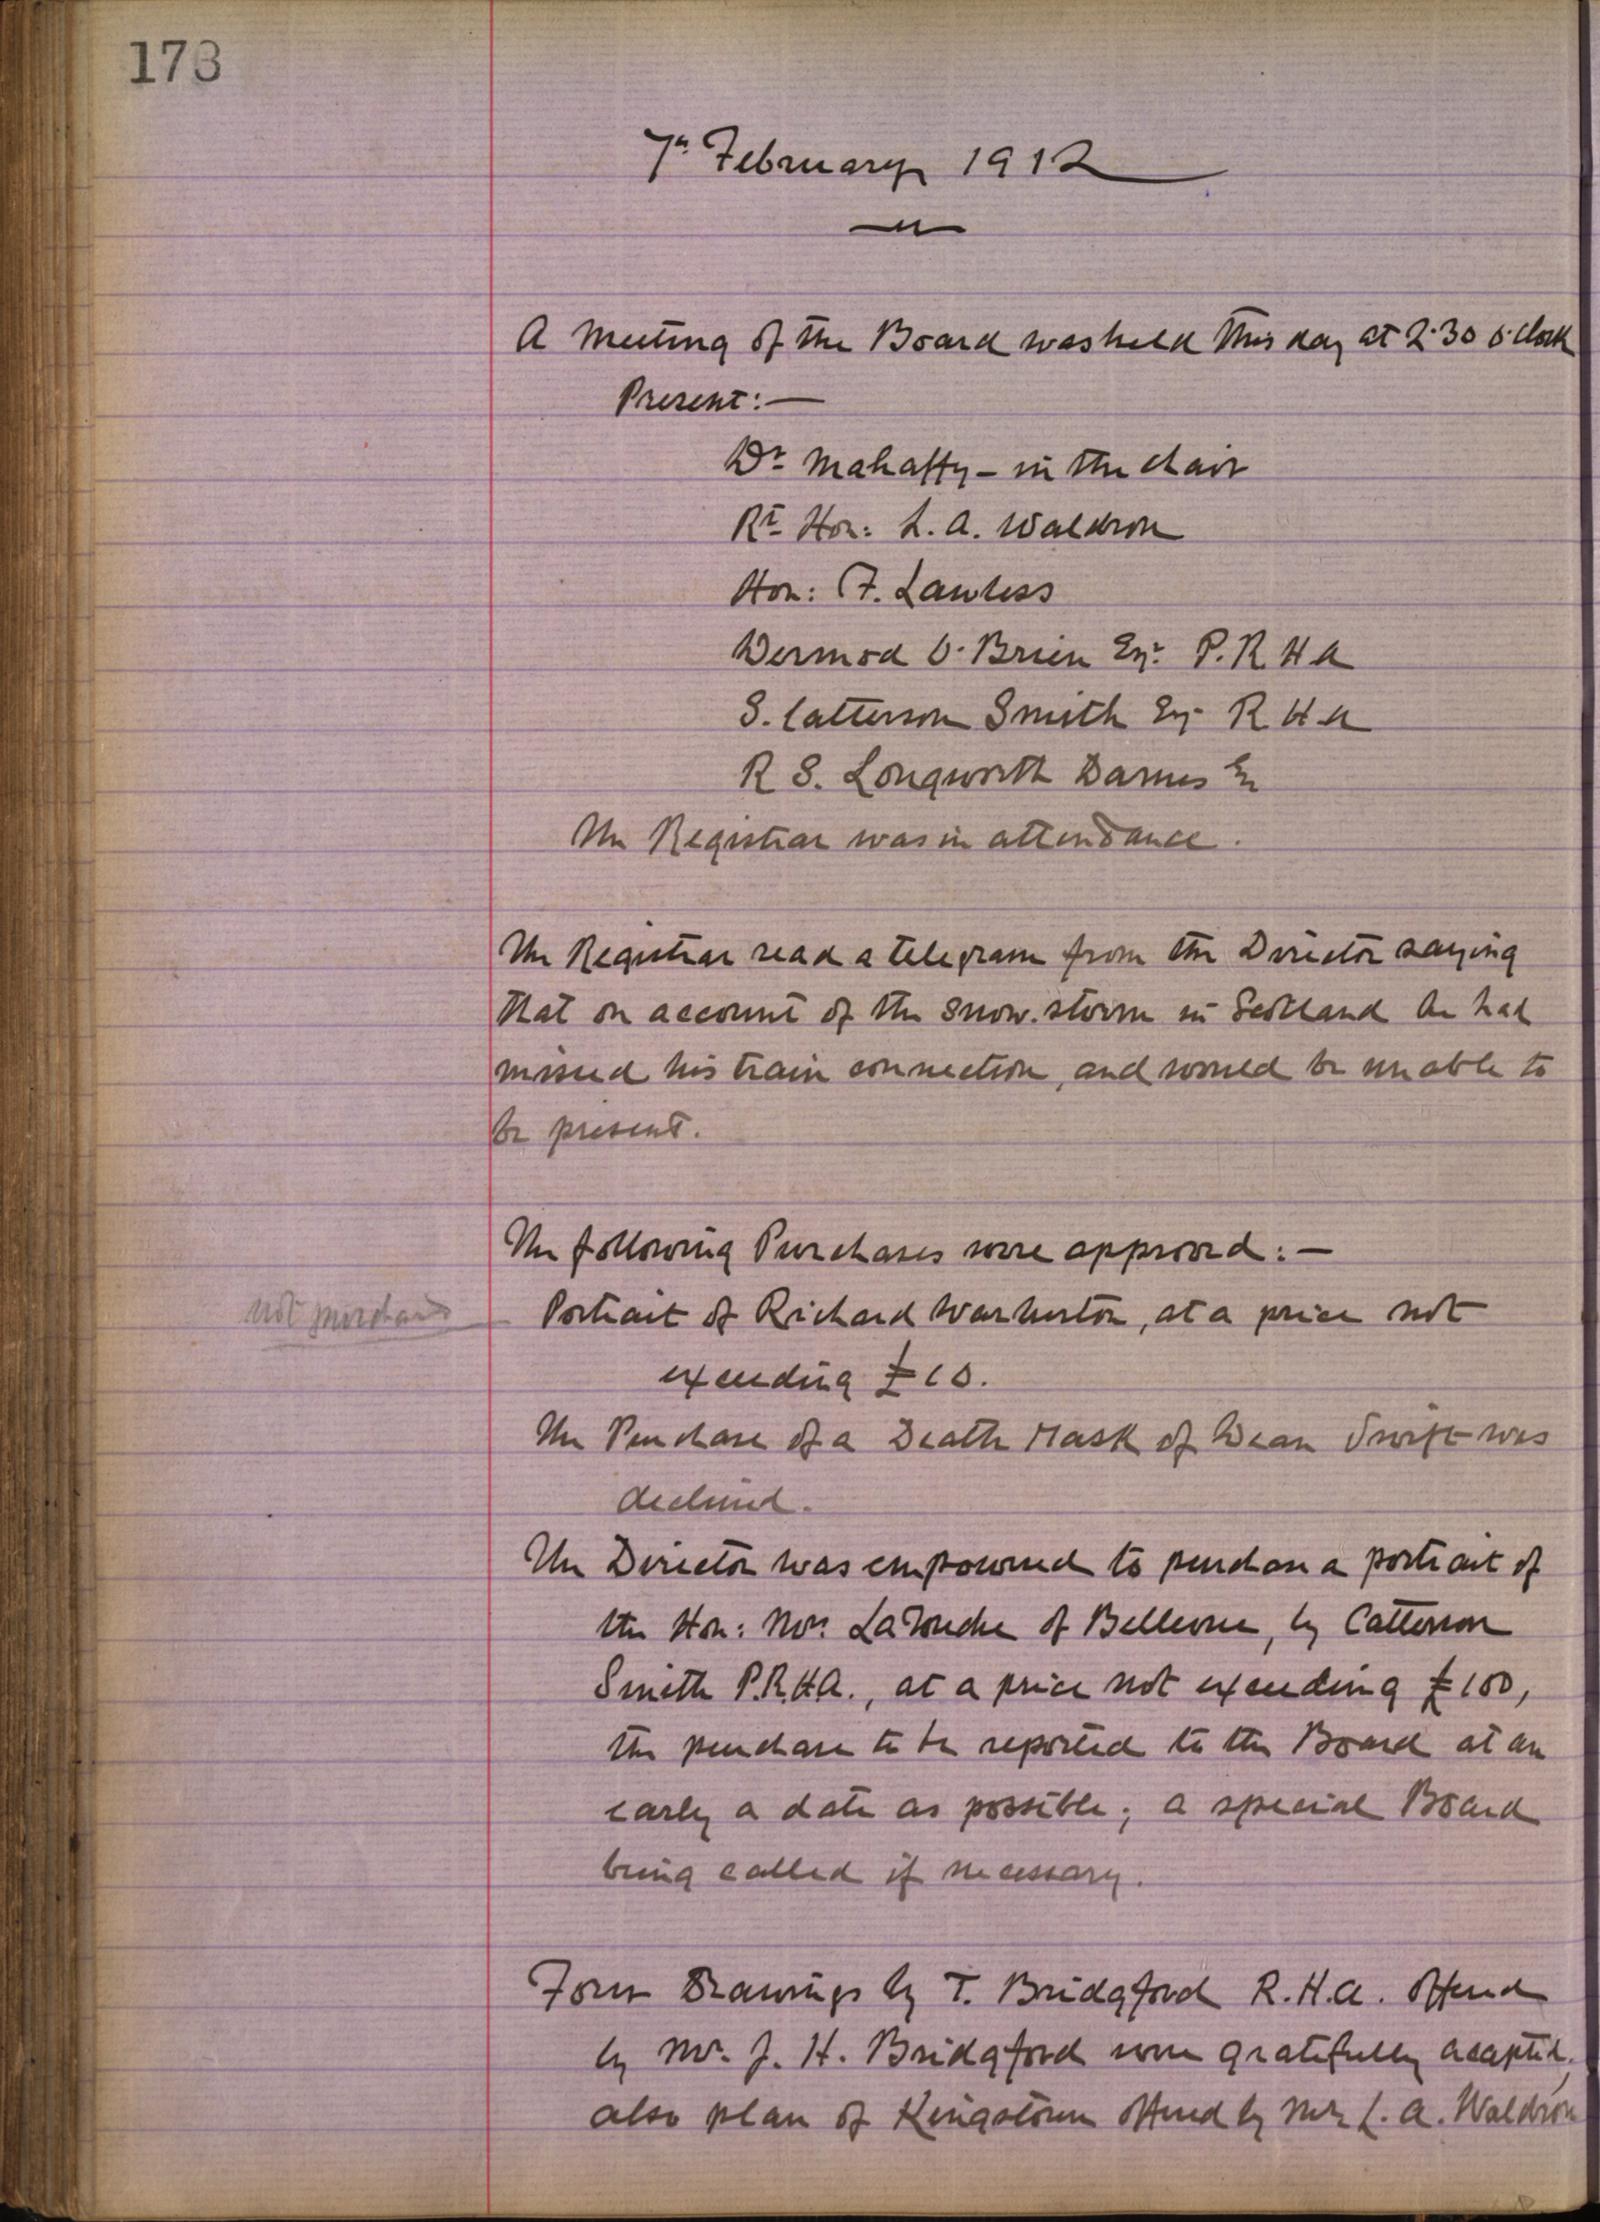 173
7th February 1912
A Meeting of the Board was held this day at 2.30 o'clock
Present:—
Dr Mahaffy – in the chair
Rt Hon: L. A. Waldron
Hon: F. Lawless
Dermod O'Brien Esqr: P.R.H.A
S. Catterson Smith Esq R H A
R S. Longworth Dames Esq
The Registrar was in attendance.
The Registrar read a telegram from the Director saying
that on account of the snow.storm in Scotland he had
missed his train connection, and would be unable to
be present.
The following Purchases were approved:—
not purchased
Portrait of Richard Warburton, at a price not
exceeding £10.
The Purchase of a Death Mask of Dean Swift was
declined.
The Director was empowered to purchase a portrait of
the Hon: Mrs. LaTouche of Bellevue, by Catterson
Smith P.R.H.A., at a price not exceeding £100,
the purchase to be reported to the Board at an
early a date as possible; a special Board
being called if necessary.
Four Drawings by T. Bridgford R.H.A. offered
by Mr. J. H. Bridgford were gratefully accepted,
also plan of Kingstown offered by Mr L. A. Waldron